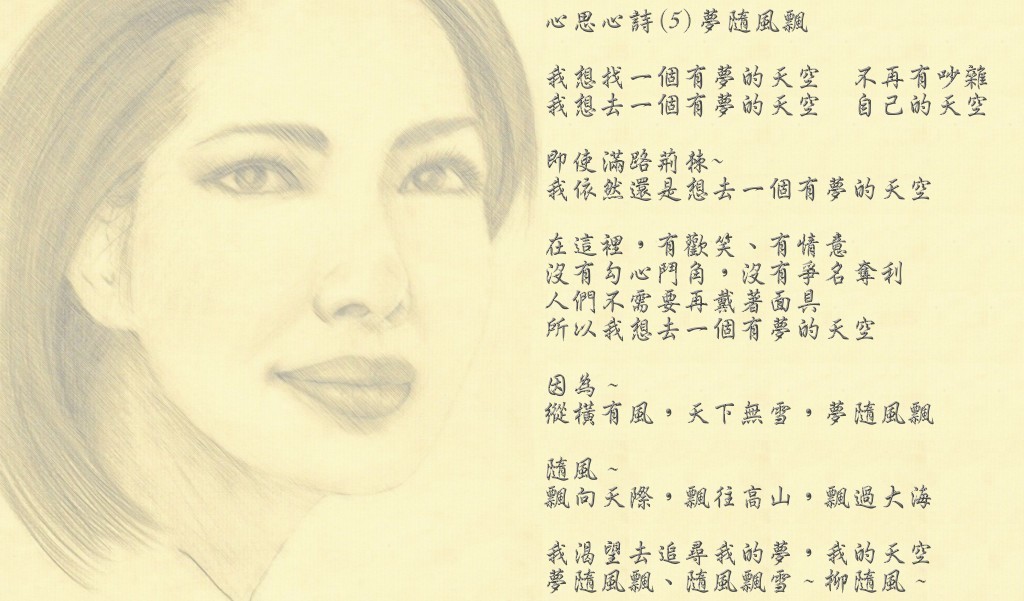 心思心詩(5)夢隨風飄
我想找一個有夢的天空　不再有吵雜
我想去一個有夢的天空　自己的天空
即使滿路荊棘~
我依然還是想去一個有夢的天空
在這裡，有歡笑、有情意
沒有勾心鬥角，沒有爭名奪利
人們不需要再戴著面具
所以我想去一個有夢的天空
因為~
縱橫有風，天下無雪，夢隨風飄
隨風~
飄向天際，飄往高山，飄過大海
我渴望去追尋我的夢，我的天空
夢隨風飄、隨風飄雪~柳隨風~